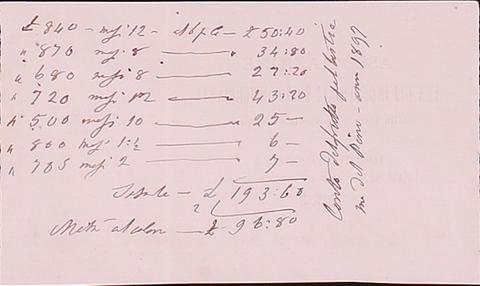 £ 840 - mesi 12 - al 6 p% - £ 50:40
" 870 mesi 8 — 34:80
" 680 mesi 8 — 27:20
" 720 mesi 12 — 43:20
" 500 mesi 10 — 25 —
" 800 mesi 1:½ — 6 —
" 705 mesi 2 — 7 —
Totale — £ 193:60
2
Metà al colono — £ 96:80
Conto
del - anno 1897